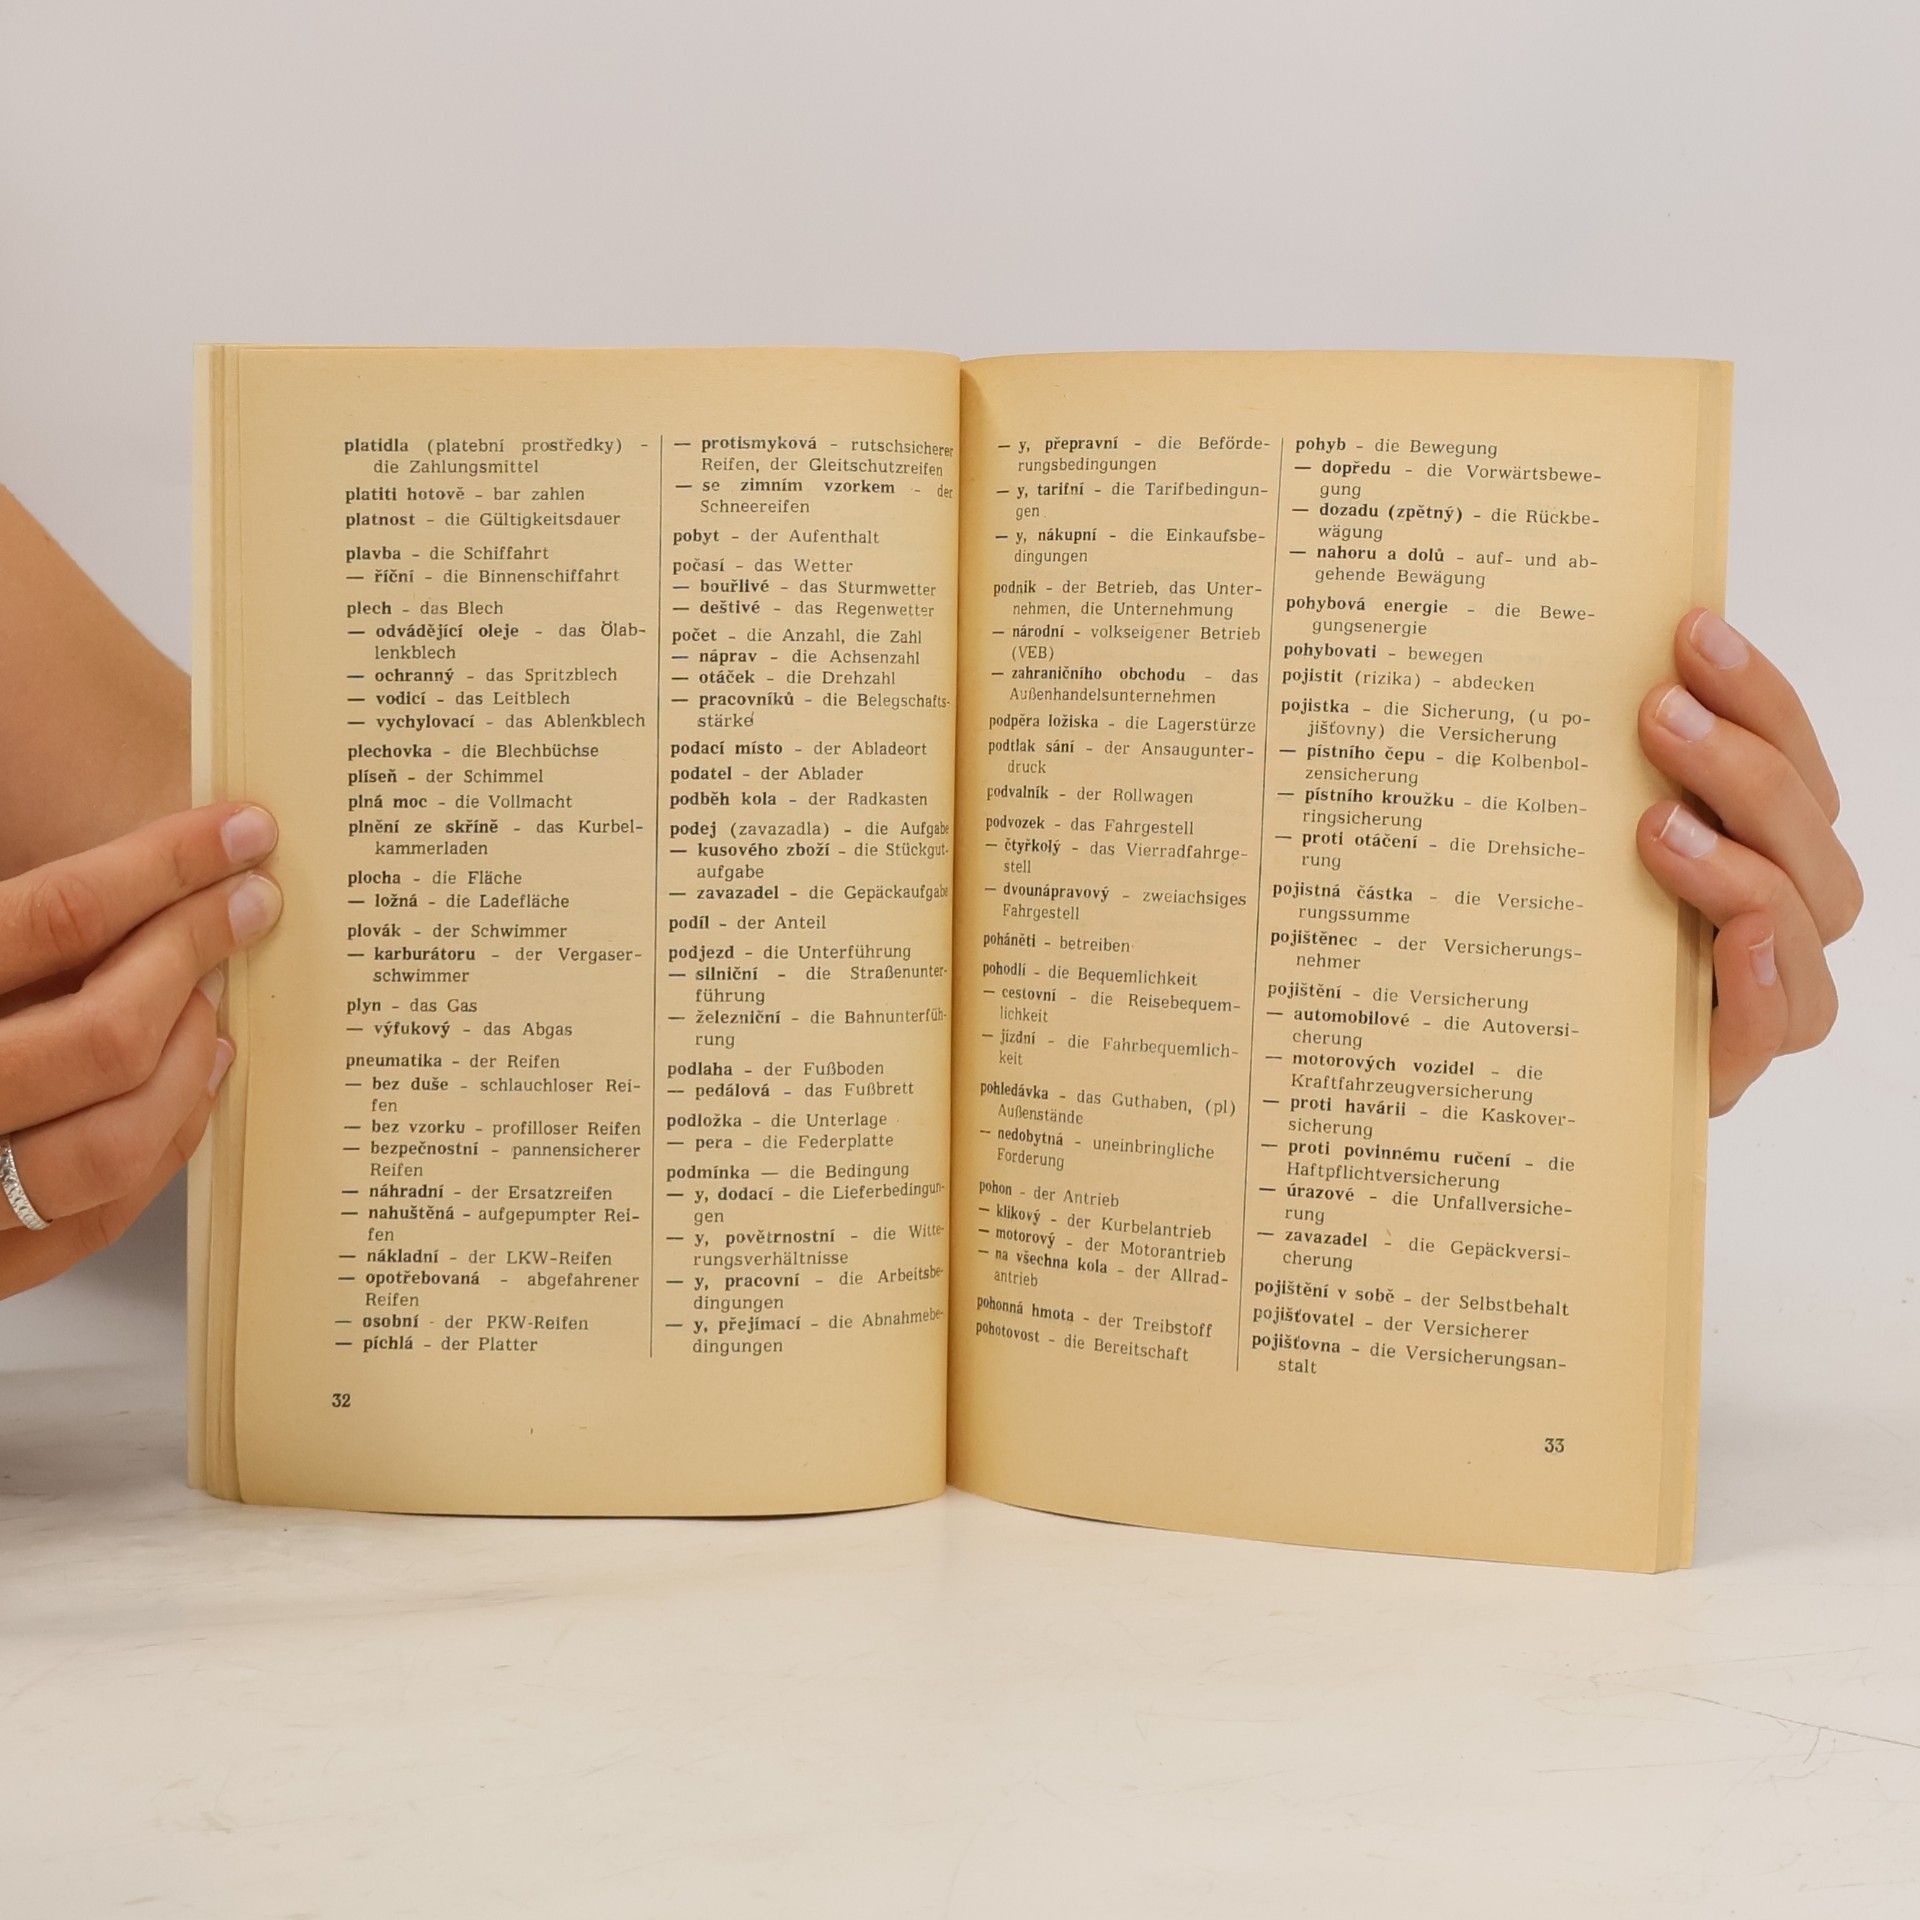 platidla (platební prostředky) –
die Zahlungsmittel
platiti hotově – bar zahlen
platnost – die Gültigkeitsdauer
plavba – die Schiffahrt
— říční – die Binnenschiffahrt
plech – das Blech
— odvádějící oleje – das Ölab-
lenkblech
— ochranný – das Spritzblech
— vodicí – das Leitblech
— vychylovací – das Ablenkblech
plechovka – die Blechbüchse
plíseň – der Schimmel
plná moc – die Vollmacht
plnění ze skříně – das Kurbel-
kammerladen
plocha – die Fläche
— ložná – die Ladefläche
plovák – der Schwimmer
— karburátoru – der Vergaser-
schwimmer
plyn – das Gas
— výfukový – das Abgas
pneumatika – der Reifen
— bez duše – schlauchloser Rei-
fen
— bez vzorku – profilloser Reifen
— bezpečnostní – pannensicherer
Reifen
— náhradní – der Ersatzreifen
— nahuštěná – aufgepumpter Rei-
fen
— nákladní – der LKW-Reifen
— opotřebovaná – abgefahrener
Reifen
— osobní - der PKW-Reifen
— píchlá – der Platter
32
— protismyková – rutschsicherer
Reifen, der Gleitschutzreifen
— se zimním vzorkem – der
Schneereifen
pobyt – der Aufenthalt
počasí – das Wetter
— bouřlivé – das Sturmwetter
— deštivé – das Regenwetter
počet – die Anzahl, die Zahl
— náprav – die Achsenzahl
— otáček – die Drehzahl
— pracovníků – die Belegschafts-
stärke
podací místo – der Abladeort
podatel – der Ablader
podběh kola – der Radkasten
podej (zavazadla) – die Aufgabe
— kusového zboží – die Stückgut-
aufgabe
— zavazadel – die Gepäckaufgabe
podíl – der Anteil
podjezd – die Unterführung
— silniční – die Straßenunter-
führung
— železniční – die Bahnunterfüh-
rung
podlaha – der Fußboden
— pedálová – das Fußbrett
podložka – die Unterlage
— pera – die Federplatte
podmínka — die Bedingung
— y, dodací – die Lieferbedingun-
gen
— y, povětrnostní – die Witte-
rungsverhältnisse
— y, pracovní – die Arbeitsbe-
dingungen
— y, přejímací – die Abnahmebe-
dingungen
— y, přepravní – die Beförde-
rungsbedingungen
— y, tarifní – die Tarifbedingun-
gen
— y, nákupní – die Einkaufsbe-
dingungen
podnik – der Betrieb, das Unter-
nehmen, die Unternehmung
— národní – volkseigener Betrieb
(VEB)
— zahraničního obchodu – das
Außenhandelsunternehmen
podpěra ložiska – die Lagerstürze
podtlak sání – der Ansaugunter-
druck
podvalník – der Rollwagen
podvozek – das Fahrgestell
— čtyřkolý – das Vierradfahrge-
stell
— dvounápravový – zweiachsiges
Fahrgestell
poháněti – betreiben
pohodlí – die Bequemlichkeit
— cestovní – die Reisebequem-
lichkeit
— jízdní – die Fahrbequemlich-
keit
pohledávka – das Guthaben, (pl)
Außenstände
— nedobytná – uneinbringliche
Forderung
pohon – der Antrieb
— klikový – der Kurbelantrieb
— motorový – der Motorantrieb
— na všechna kola – der Allrad-
antrieb
pohonná hmota – der Treibstoff
pohotovost – die Bereitschaft
pohyb – die Bewegung
— dopředu – die Vorwärtsbewe-
gung
— dozadu (zpětný) – die Rückbe-
wägung
— nahoru a dolů – auf- und ab-
gehende Bewägung
pohybová energie – die Bewe-
gungsenergie
pohybovati – bewegen
pojistit (rizika) – abdecken
pojistka – die Sicherung, (u po-
jišťovny) die Versicherung
— pístního čepu – die Kolbenbol-
zensicherung
— pístního kroužku – die Kolben-
ringsicherung
— proti otáčení – die Drehsiche-
rung
pojistná částka – die Versiche-
rungssumme
pojištěnec – der Versicherungs-
nehmer
pojištění – die Versicherung
— automobilové – die Autoversi-
cherung
— motorových vozidel – die
Kraftfahrzeugversicherung
— proti havárii – die Kaskover-
sicherung
— proti povinnému ručení – die
Haftpflichtversicherung
— úrazové – die Unfallversiche-
rung
— zavazadel – die Gepäckversi-
cherung
pojištění v sobě – der Selbstbehalt
pojišťovatel – der Versicherer
pojišťovna – die Versicherungsan-
stalt
33